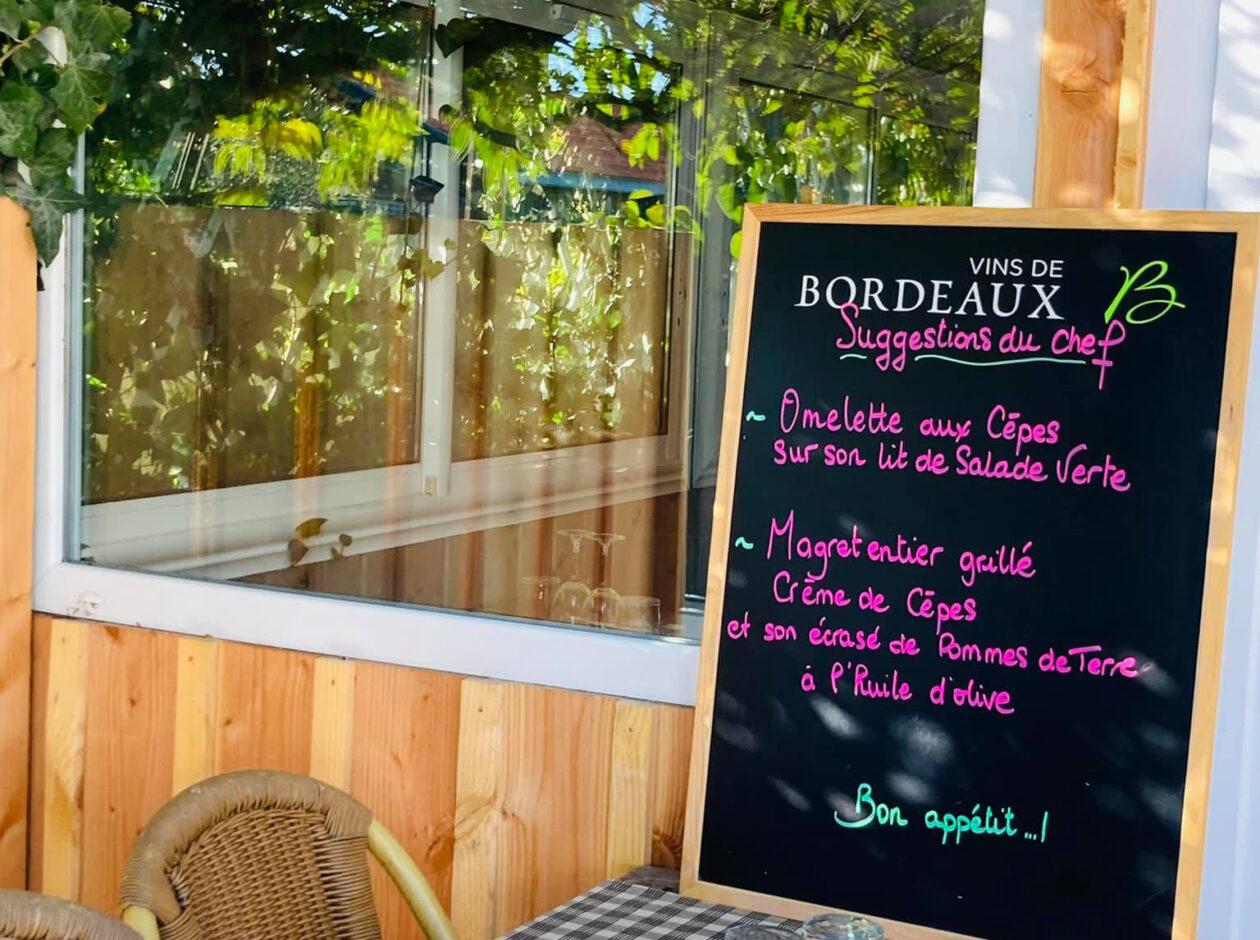 VINS DE
BORDEAUX B
Suggestions du chef
~ Omelette aux Cēpes
sur son lit de Salade Verte
~ Magret entier grillé
Crēme de Cēpes
et son écrasé de Pommes de Terre
à l'Huile d'olive
Bon appétit...!